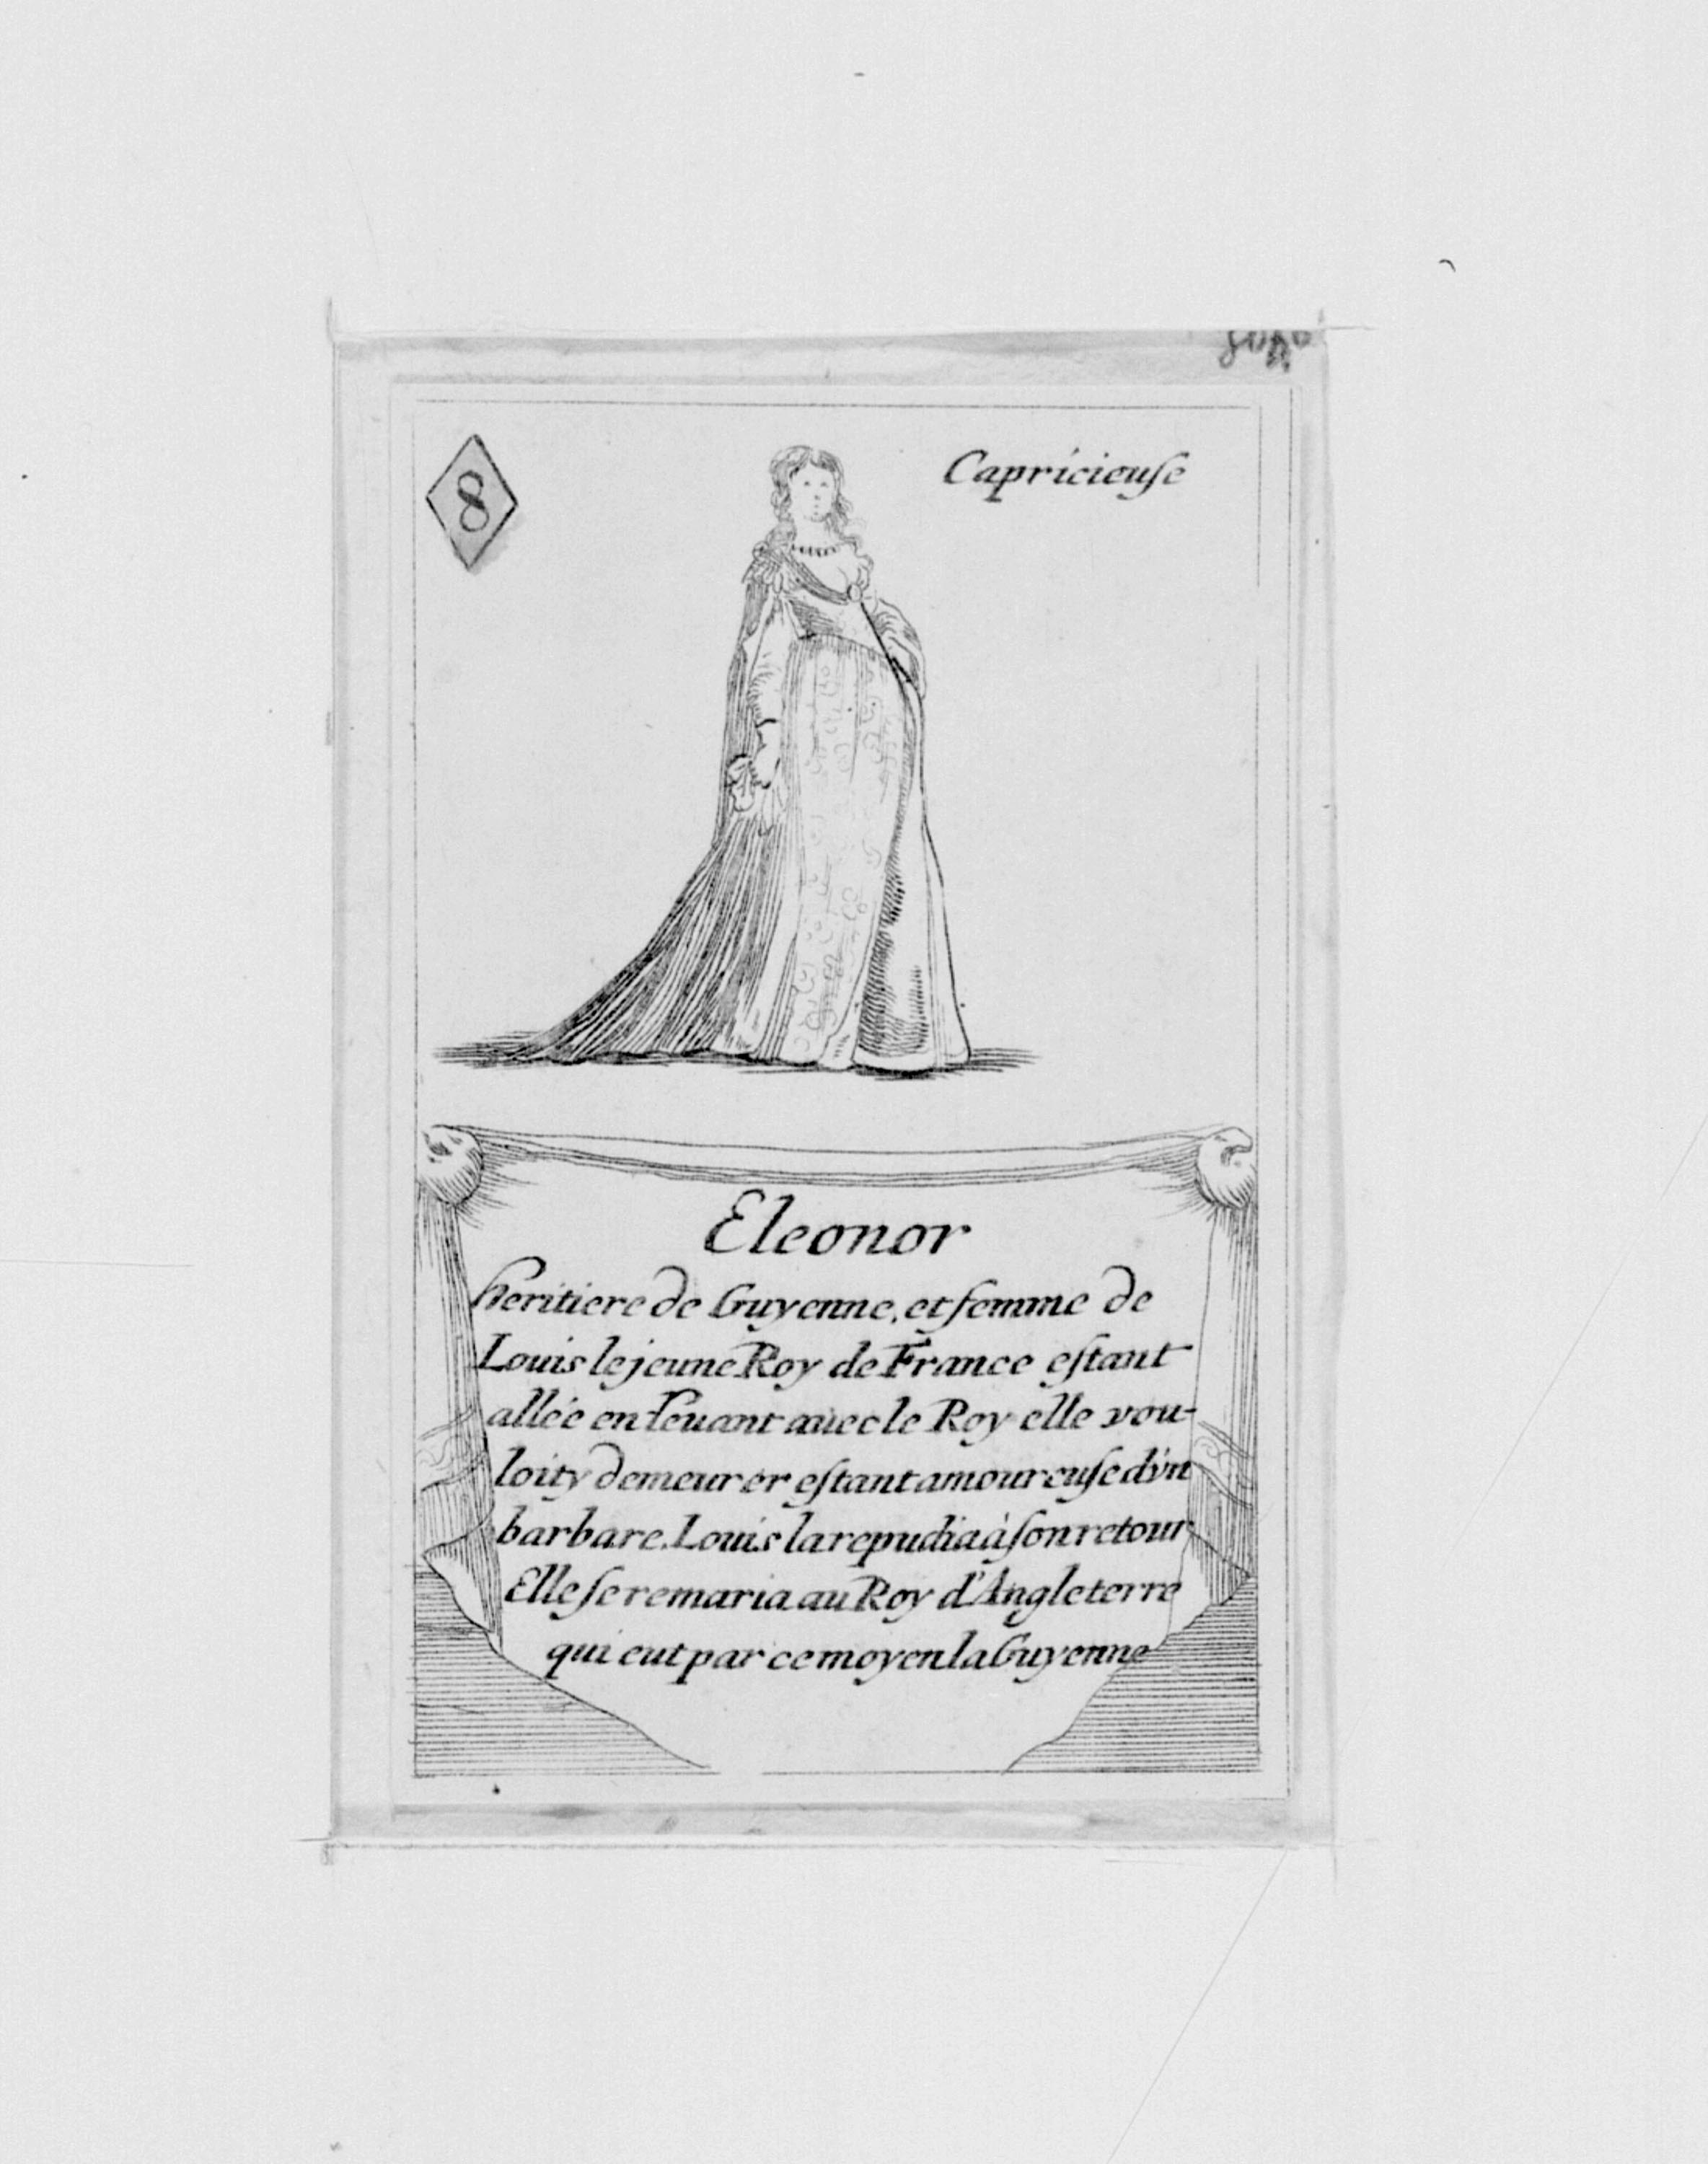 8
Capricieuse
Eleonor
heritiere de Guyenne, et femme de
Louis le jeune Roy de France estant
allée en Leuant auec le Roy elle vou-
loit y demeurer estant amoureuse d'vn
barbare. Louis la repudia à son retour
Elle se remaria au Roy d'Angleterre
qui eut par ce moyen la Guyenne